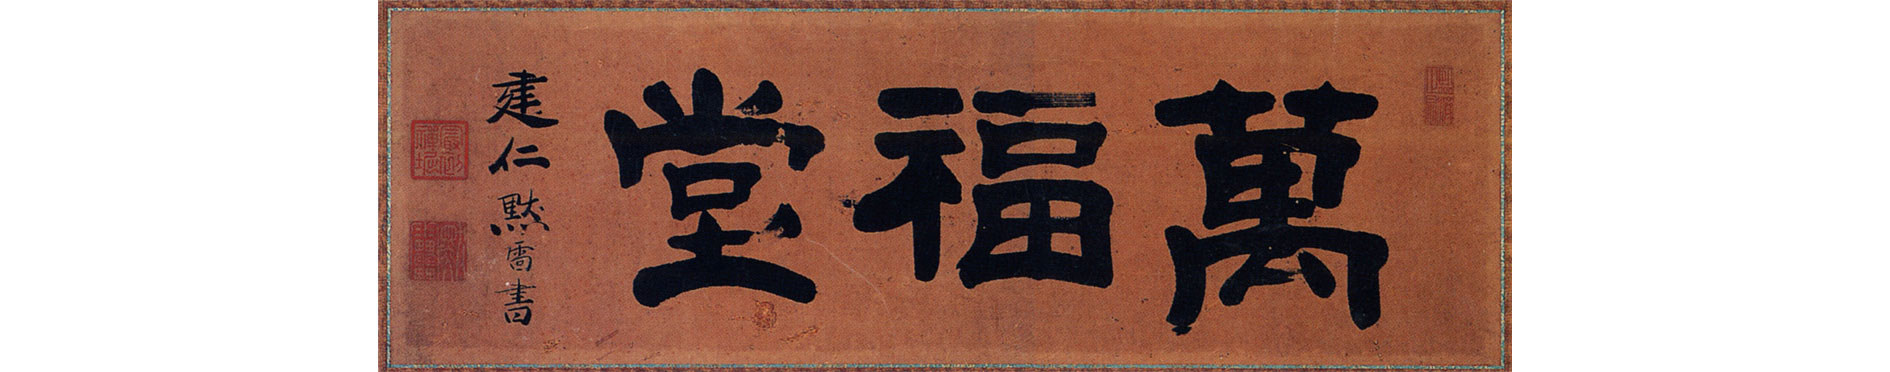 萬福堂
建仁黙雷書